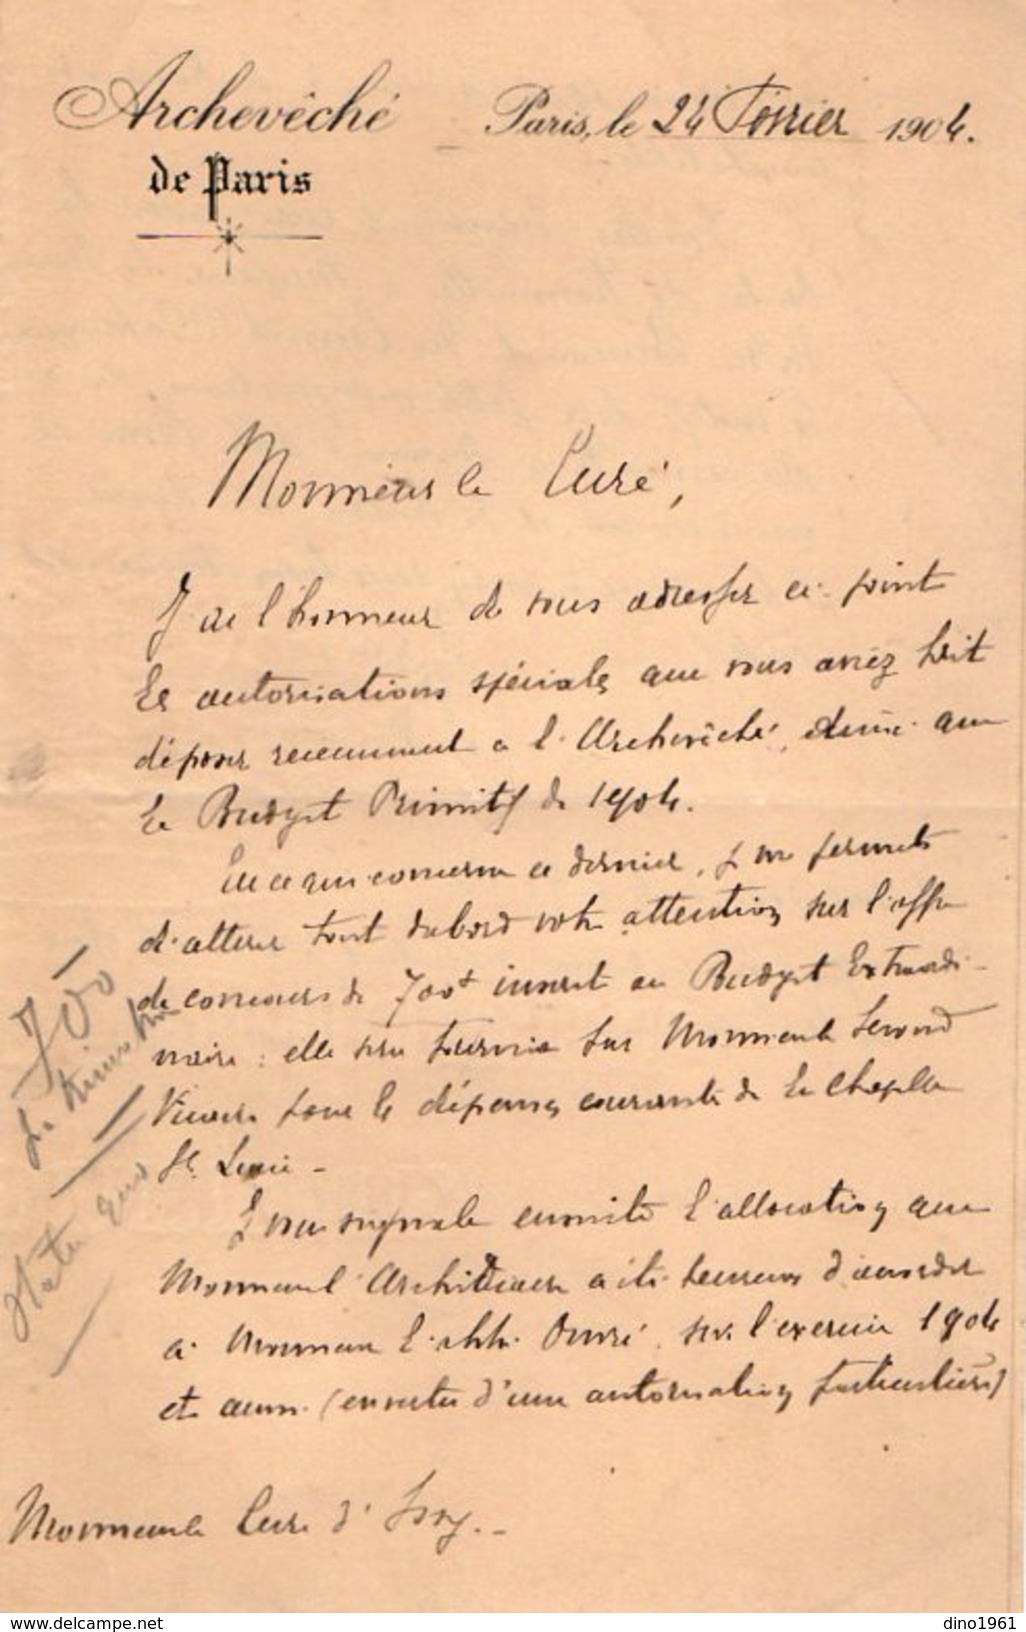 Archevêché
de Paris
Paris, le 24 Février 1904.
Monsieur le Curé,
J'ai l'honneur de vous adresser ci-joint
les autorisations spéciales que vous aviez fait
déposer récemment à l'Archevêché, ainsi que
le Budget Primitif de 1904.
En ce qui concerne ce dernier, je me permets
d'attirer tout d'abord votre attention sur l'offre
de concours de 700f inscrit au Budget Extraordi-
naire : elle sera fournie par Monsieur le Second
Vicaire pour les dépenses courantes de la Chapelle
St. Lucie -
Je vous signale ensuite l'allocation que
Monsieur l'Archidiacre a été heureux d'accorder
à Monsieur l'abbé sur l'exercice 1904
et aussi (en vertu d'une autorisation particulière)
Monsieur le Curé d'Issy. -
700
https://www.delcampe.net
dino1961